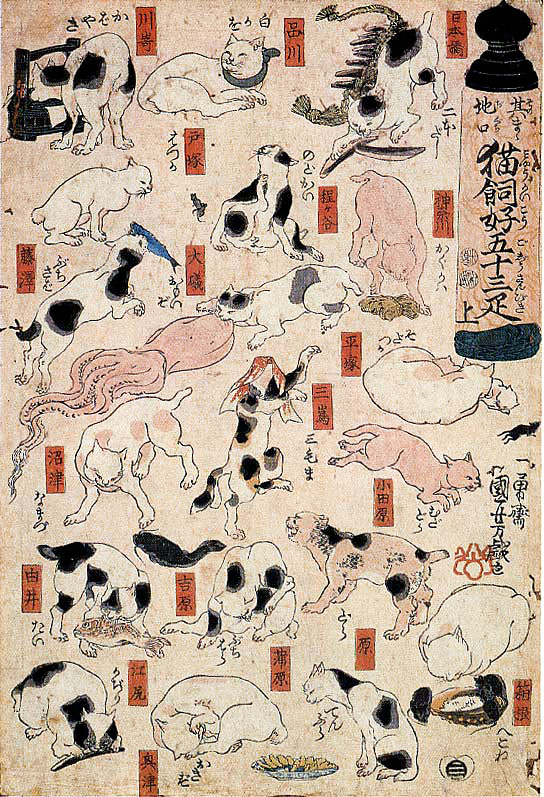 其まゝ地口
猫飼好五十三疋
上
日本橋
二本だし
品川
白かを
川崎
かばやき
神奈川
かぐかハ
程ヶ谷
のどかい
戸塚
はつか
平塚
そだつか
大礒
おもいぞ
藤澤
ぶちさば
小田原
むだどら
三嶌
三毛ま
沼津
なまづ
箱根
へこね
原
どら
吉原
ぶちはら
蒲原
てんぷら
由井
たい
江尻
かぢり
奥津
おきず
一勇齋
國芳戯画